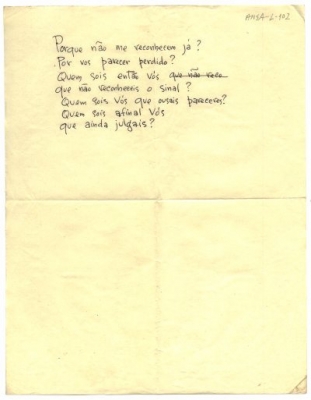 AMSA-L-102
Porque não me reconhecem já?
Por vos parecer perdido?
Quem sois então vós que não reco
que não reconheceis o sinal?
Quem sois Vós que ousais parecerem?
Quem sois afinal Vós
que ainda julgais?